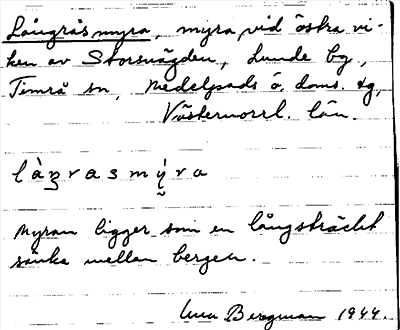 Långräsmyra, myra vid östra vi-
ken av Storsvägden, Lunde by,
Timrå sn, Medelpads ö. doms. tg,
Västernorrl. län.
Myran ligger som en långsträckt
sänka mellan bergen.
Bergman 1944.